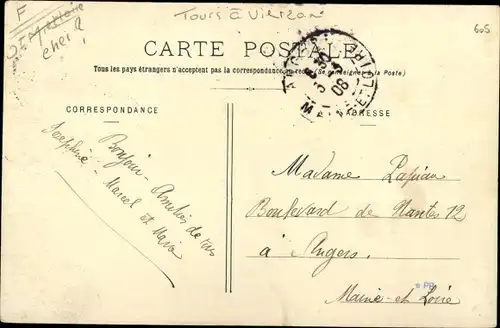 F
Tours à Vierzon
605
CARTE POSTALE
Tous les pays étrangers n'acceptent pas la correspondance au recto (Se renseigner à la Poste)
CORRESPONDANCE
ADRESSE
Bonjour - Amitiés de
Joséphine - Marcel et
Madame
Boulevard de Nantes 12
à Angers
Maine-et-Loire
* PP